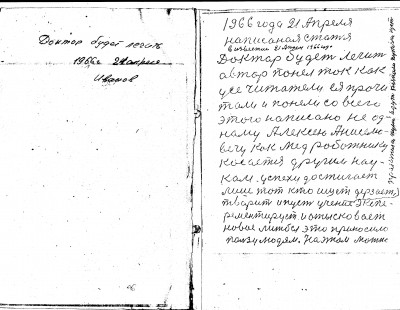 Доктар будет легать
1966г 21 апреля
Иванов
1966 года 21 Апреля
написаная статя
в известия 21 Апреля 1966 году
Доктар будет легит
автор понел ток как
усе читатели ея прочи
тали и понели со всего
этого написано не од-
наму Алексею Анисем-
вечу как медроботнику
косается другим нау-
кам. успехи достигает
лише тот кто ищет дерзает,
тварит ищет учение экспе-
рементирует и отысковает
новое лиш бы это приносило
ползу людям. На этом можно